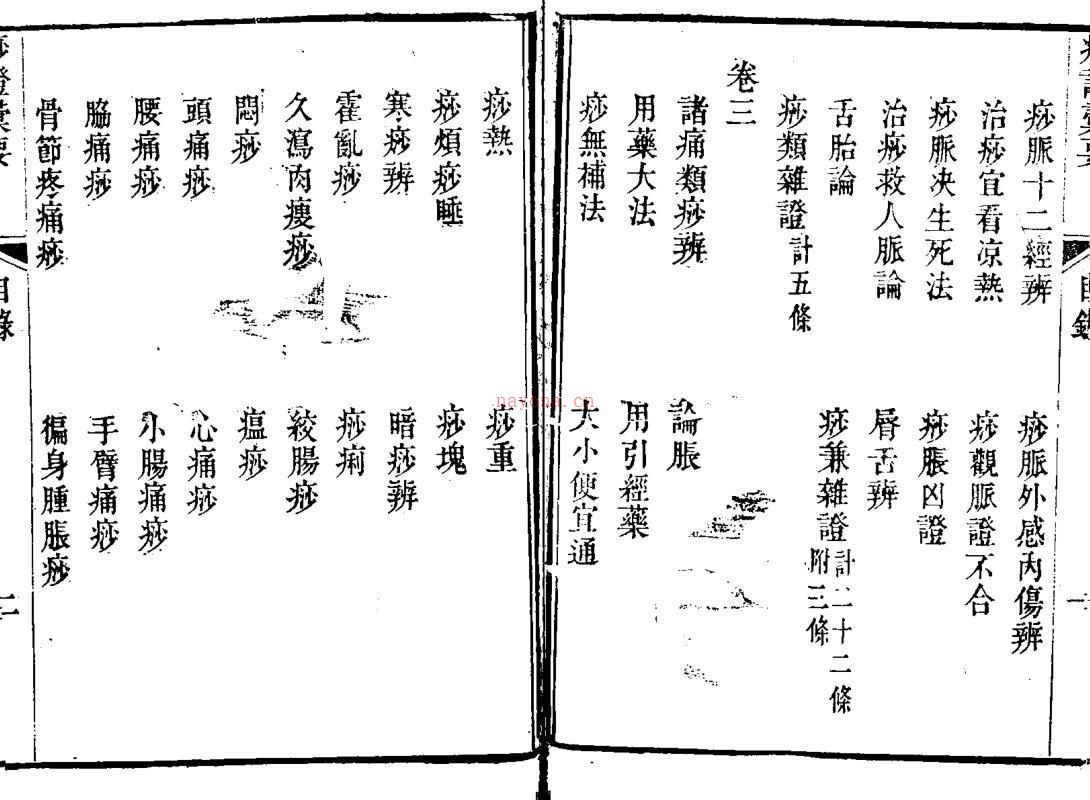 痧脈十二經辨　痧脈外感內傷辨
治痧宜看凉熱　痧觀脈證不合
痧脈决生死法　痧脹凶證
治痧救人脈論　唇舌辨
舌胎論　痧兼雜證計二十二條附三條
痧類雜證計五條
卷三
諸痛類痧辨　論脹
用藥大法　用引經藥
痧無補法　大小便宜通
痧熱　痧重
痧煩痧睡　痧塊
寒痧辨　暗痧辨
霍亂痧　痧痢
久瀉肉瘦痧　絞腸痧
悶痧　瘟痧
頭痛痧　心痛痧
腰痛痧　小腸痛痧
脇痛痧　手臂痛痧
骨節疼痛痧　徧身腫脹痧
目錄
二
nayona.cn